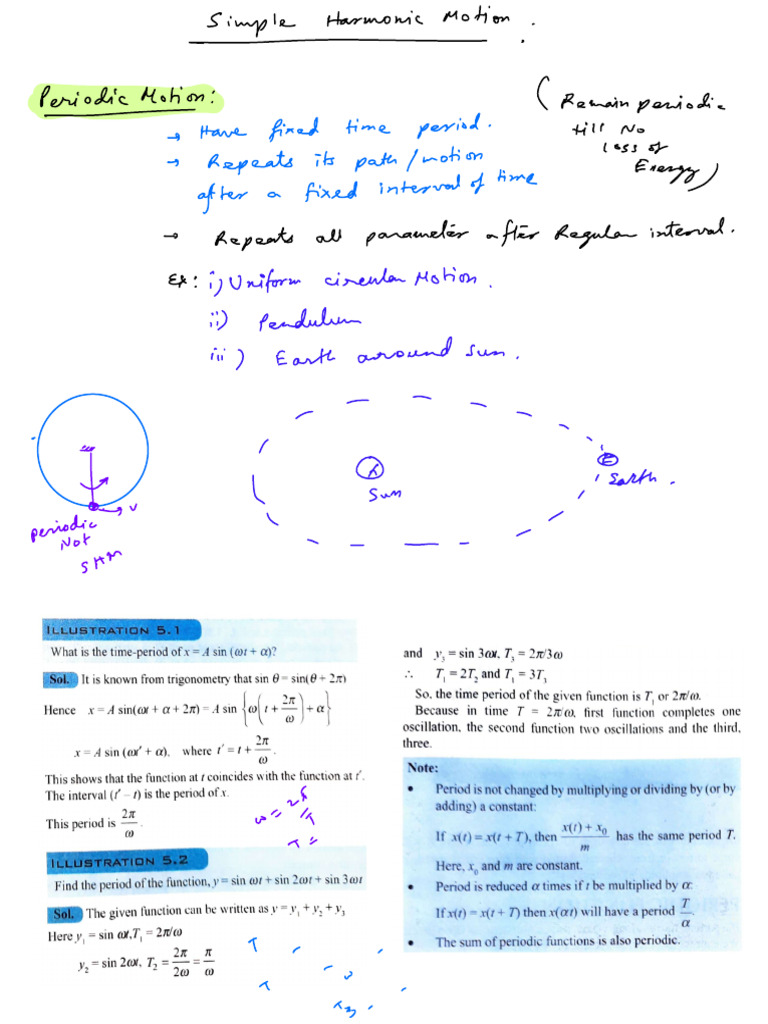 Simple Harmonic Motion.
Periodic Motion:
(Remain periodic
till No
loss of
Energy)
→ Have fixed time period.
→ Repeats its path/motion
after a fixed interval of time
→ Repeats all parameter after Regular interval.
Ex: i) Uniform circular Motion.
ii) Pendulum
iii) Earth around Sun.
v
Periodic
Not
SHM
Sun
E
Earth.
ILLUSTRATION 5.1
What is the time-period of x = A sin (ωt + α)?
Sol. It is known from trigonometry that sin θ = sin(θ + 2π)
Hence x = A sin(ωt + α + 2π) = A sin {ω(t + 2π/ω) + α}
x = A sin (ωt' + α), where t' = t + 2π/ω
This shows that the function at t coincides with the function at t'.
The interval (t' – t) is the period of x.
This period is 2π/ω.
ω = 2π/T
T =
ILLUSTRATION 5.2
Find the period of the function, y = sin ωt + sin 2ωt + sin 3ωt
Sol. The given function can be written as y = y₁ + y₂ + y₃
Here y₁ = sin ωt, T₁ = 2π/ω
y₂ = sin 2ωt, T₂ = 2π/2ω = π/ω
and y₃ = sin 3ωt, T₃ = 2π/3ω
∴ T₁ = 2T₂ and T₁ = 3T₃
So, the time period of the given function is T₁ or 2π/ω.
Because in time T = 2π/ω, first function completes one
oscillation, the second function two oscillations and the third,
three.
Note:
• Period is not changed by multiplying or dividing by (or by
adding) a constant:
If x(t) = x(t + T), then (x(t) + x₀)/m has the same period T.
Here, x₀ and m are constant.
• Period is reduced α times if t be multiplied by α:
If x(t) = x(t + T) then x(αt) will have a period T/α.
• The sum of periodic functions is also periodic.
T
T